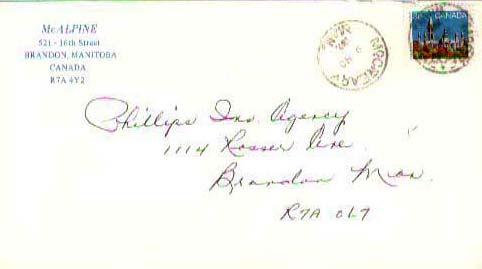 McALPINE
521 - 16th Street
BRANDON, MANITOBA
CANADA
R7A 4Y2
McCREARY
MAN
CANADA
Phillips Ins. Agency
1114 Rosser Ave.
Brandon Man.
R7A 0L7